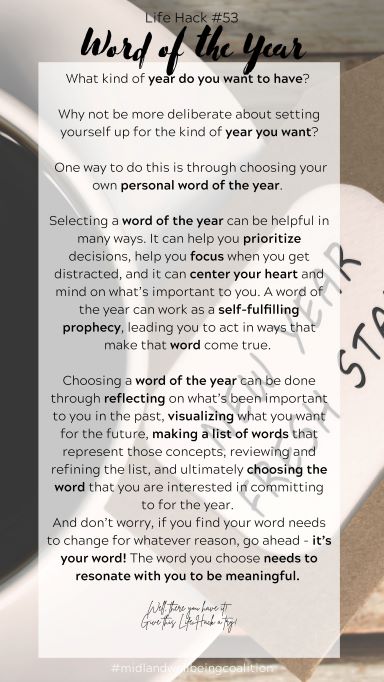 Life Hack #53
Word of the Year
What kind of year do you want to have?
Why not be more deliberate about setting
yourself up for the kind of year you want?
One way to do this is through choosing your
own personal word of the year.
Selecting a word of the year can be helpful in
many ways. It can help you prioritize
decisions, help you focus when you get
distracted, and it can center your heart and
mind on what's important to you. A word of
the year can work as a self-fulfilling
prophecy, leading you to act in ways that
make that word come true.
Choosing a word of the year can be done
through reflecting on what's been important
to you in the past, visualizing what you want
for the future, making a list of words that
represent those concepts, reviewing and
refining the list, and ultimately choosing the
word that you are interested in committing
to for the year.
And don't worry, if you find your word needs
to change for whatever reason, go ahead - it's
your word! The word you choose needs to
resonate with you to be meaningful.
Well, there you have it!
Give this Life Hack a try!
#midlandwellbeingcoalition
NEW YEAR
FRESH START